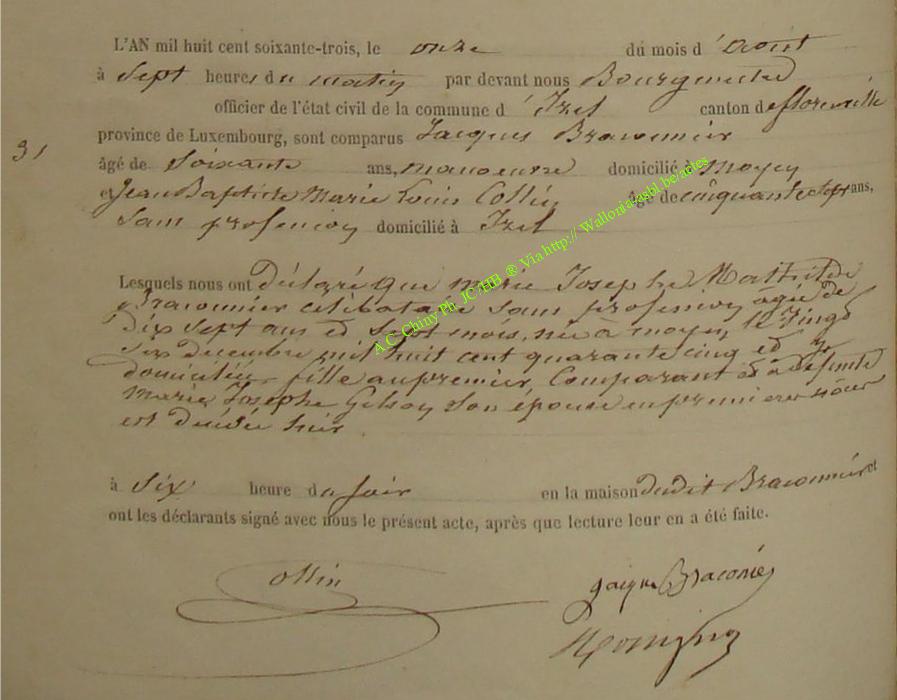 L'AN mil huit cent soixante-trois, le onze du mois d'Aout
à Sept heures du matin par devant nous Bourgmestre
officier de l'état civil de la commune d'Izel canton de florenville
province de Luxembourg, sont comparus Jacques Braconnier
31
âgé de Soixante ans, manoeuvre domicilié à moyen
et Jean Baptiste Marie Louis Collin âgé de cinquante sept ans,
Sans profession domicilié à Izel
Lesquels nous ont Déclaré que marie Josephe Mathilde
Braconnier célibataire Sans profession agée de
Dix Sept ans et Sept mois, née a moyen le Vingt
Six decembre mil huit cent quarante cinq et y
domiciliée fille au premier Comparant et a defunte
Marie Josephe Gilson Son épouse en premieres nôces
est décédée hier
à Six heure du Soir en la maison dudit Braconnier et
ont les déclarants signé avec nous le présent acte, après que lecture leur en a été faite.
Collin
Braconier
A.C. Chiny Ph JC/HB ® Via http:// Wallonia-asbl.be/actes